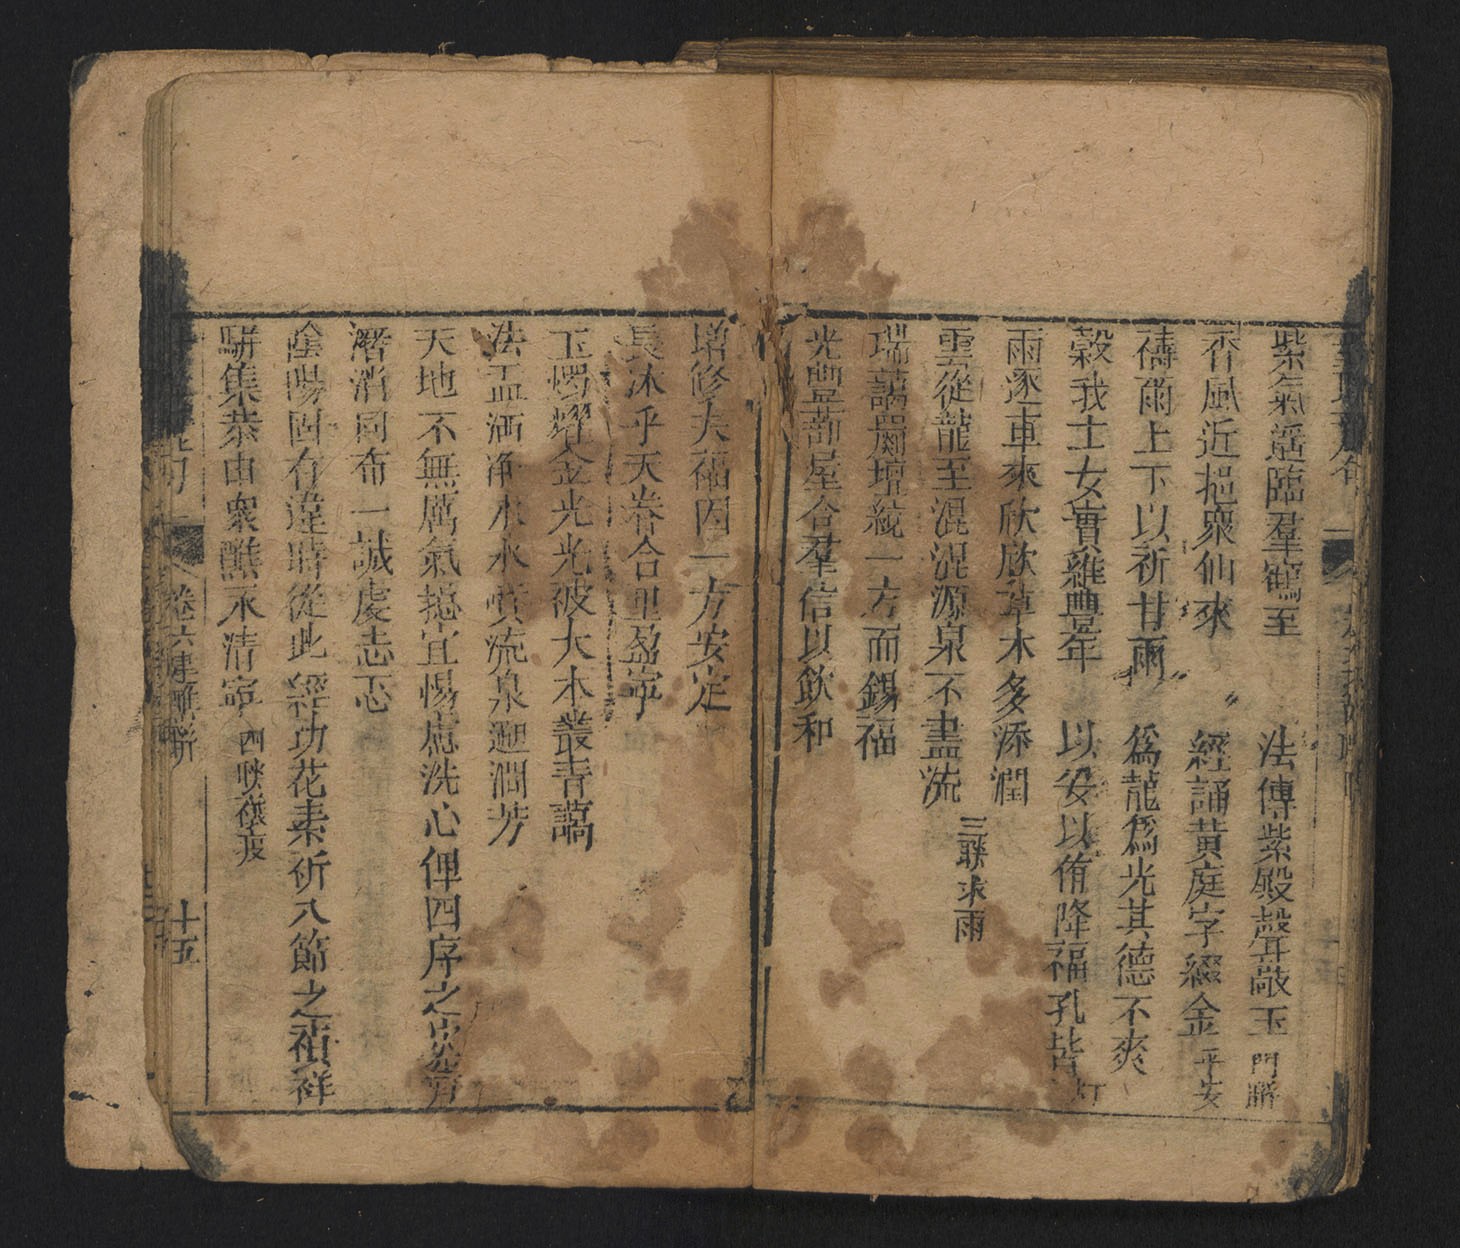 紫氣遥臨羣鶴至　法傳紫殿聲敲玉 門聯
香風近挹衆仙來　經誦黃庭字綴金 平安
禱爾上下以祈甘雨　爲龍爲光其德不爽
穀我士女實雖豊年　以妥以侑降福孔皆 灯
雨逐車來欣欣草木多添潤
雲從龍至混混源泉不盡流 三聯求雨
瑞靄壇統一方而錫福
光豊蔀屋合羣信以飲和
增修大福因一方安定
長沐乎天眷合里盈寧
玉燭耀金光光被大木叢青靄
法盂洒淨水水噴流泉迴潤芳
天地不無厲氣挹宜惕慮洗心俾四序之
潛消同布一誠虔志忑
陰陽固有違時從此經功花素祈八節之禎祥
駢集恭由衆醮永清寧 四聯禳疫
卷六 建醮祈
十五